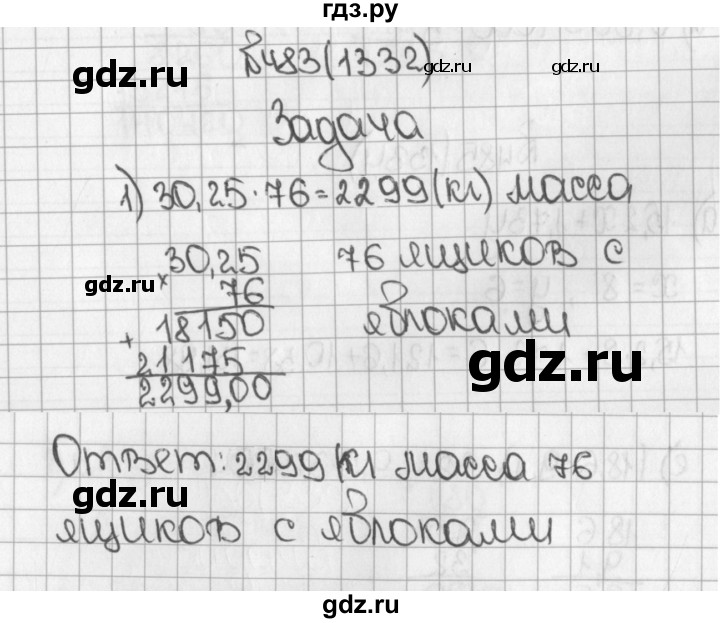 гдз.ру
№483(1332)
gdz.ru
gdz.ru
gdz.ru
Задача
1) 30,25·76=2299(кг) масса
30,25 76 ящиков с
gdz.ru
× 76
18150 яблоками
+
21175
gdz.ru
2299,00
Ответ: 2299 кг масса 76
gdz.ru
ящиков с яблоками
gdz.ru